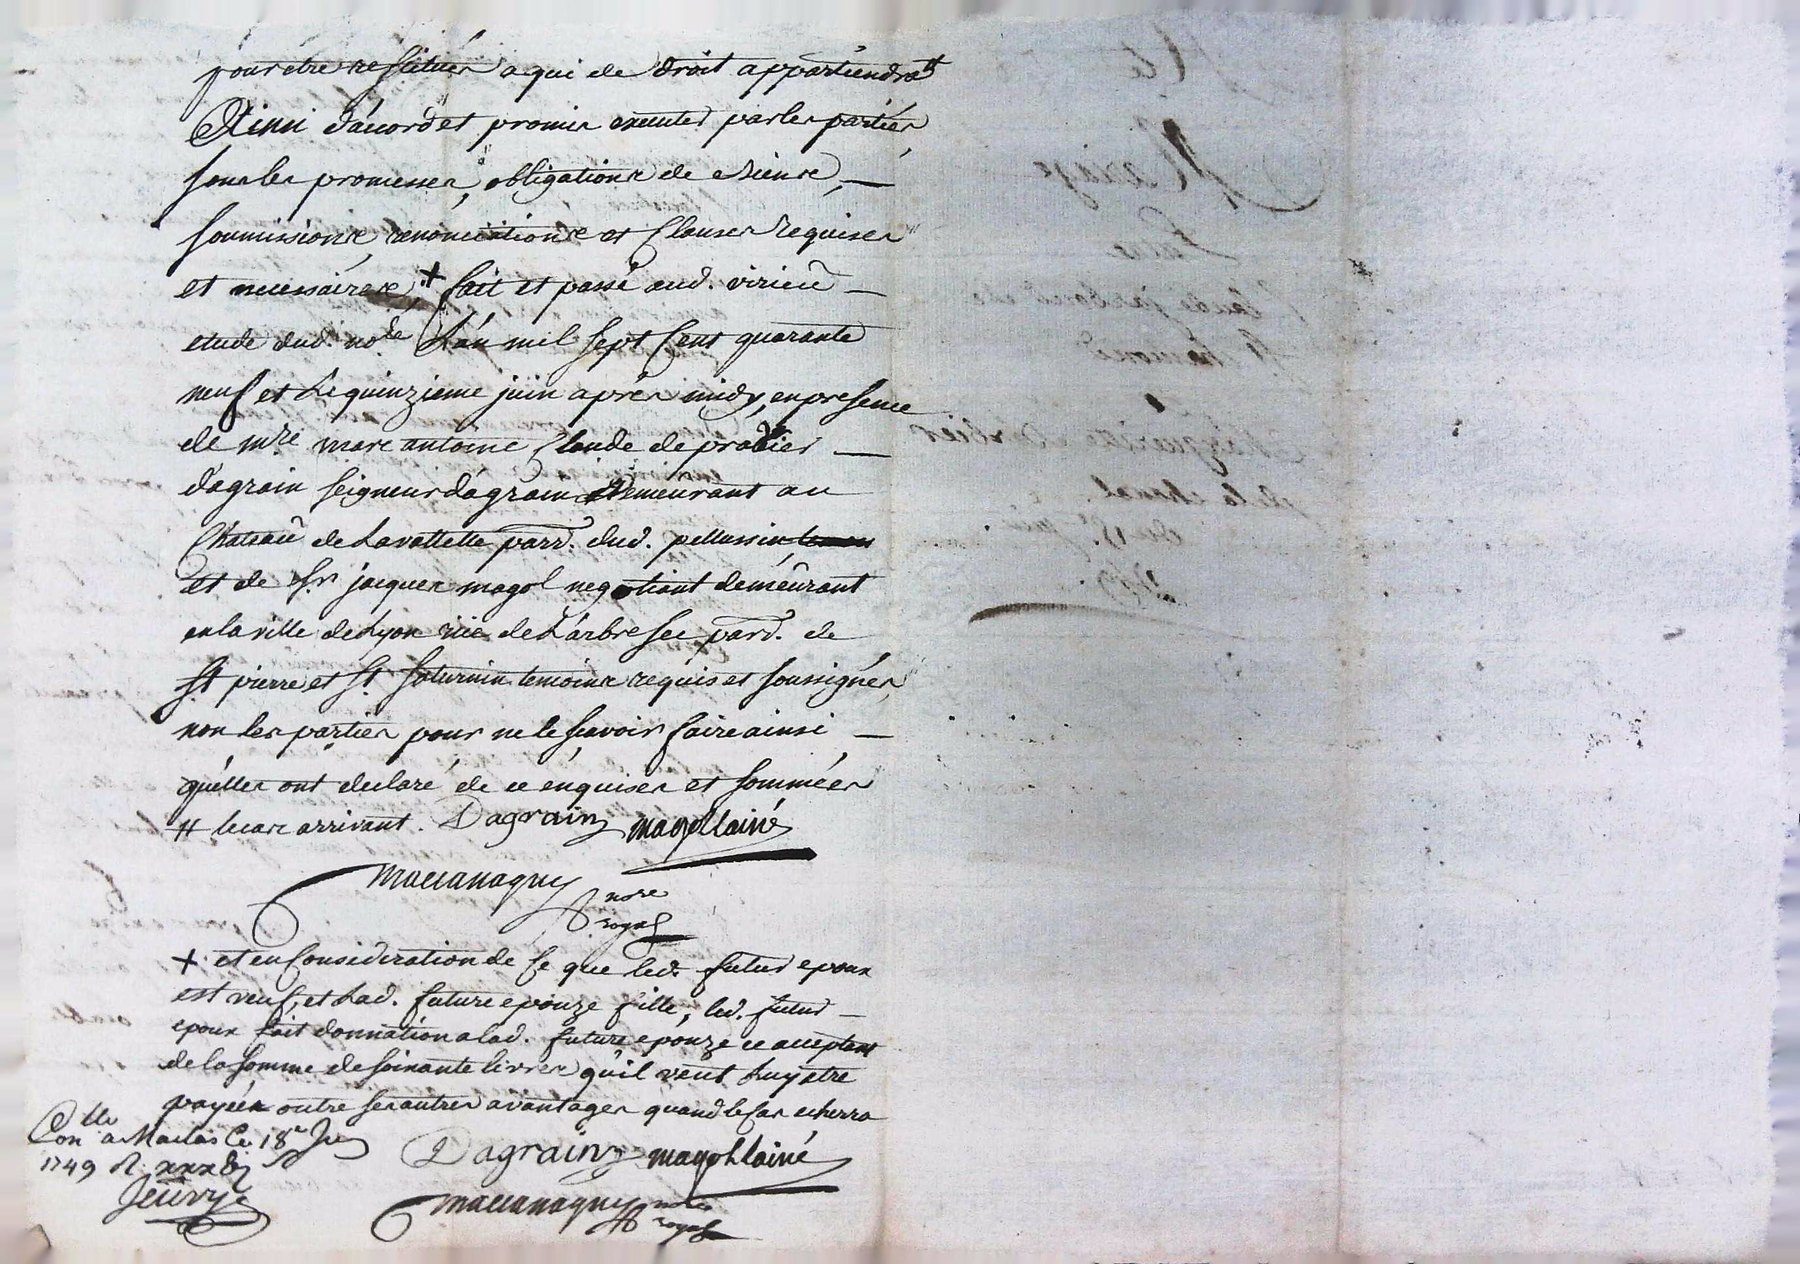 pour etre restitués a qui de droit appartiendrat
Ainsi d'accord et promis executer par les parties
sous les promesses, obligations de biens, —
soumissions, renonciations et Clauses requises
et necessaires, + fait et passé aud. virieû —
etude dud. no.re L'an mil sept Cent quarante
neuf et Le quinzieme juin aprés midy, en presence
de m.re marc antoine Claude de pradier —
d'agrain seigneur d'agrain demeurant au
Chateau de Lavallette parr. dud. pellussin
et de Sr. jacques magol negotiant demeûrant
en la ville de Lyon rüe de L'arbre sec parr. de
St. pierre et St. Saturnin temoins requis et soussignés
non les parties pour ne le sçavoir faire ainsi —
qu'elles ont declaré de ce enquises et sommées
# le cas arrivant. Dagrain magol lainé
maccanaguy
nore
royal
+ et en Consideration de Ce que led. futur epoux
est veuf, et Lad. future epouze fille, led. futur —
epoux fait donnation a lad. future epouze ce acceptant
de la somme de soixante livres qu'il veut Luy etre
payéé outre ses autres avantages quand le Cas echerra
Con.lle a Maclas Ce 18e Juin Dagrain magol lainé
1749 R.
Jeûvry maccanaguy nore
royal
Mariage
Entre
Claude
St.
Marguerite
de la
du 15e juin
1749